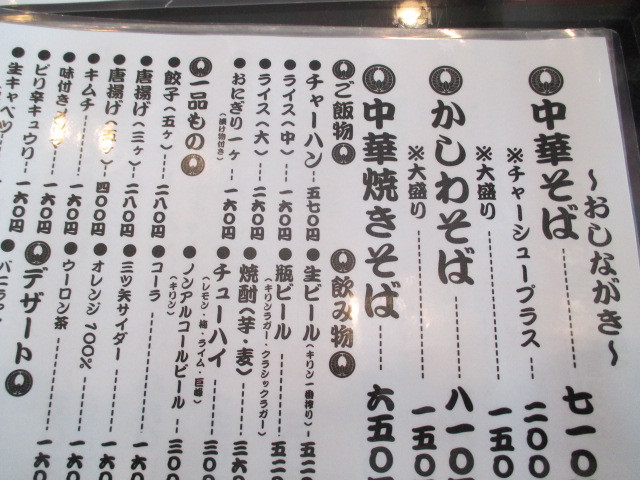 〜おしながき〜
中華そば 七一〇
※チャーシュープラス 二〇〇
※大盛り 一五〇
かしわそば 八一〇
※大盛り 一五〇
中華焼きそば 六五〇
ご飯物
●チャーハン 五七〇円
●ライス(中) 一六〇円
●ライス(大) 二六〇円
●おにぎり一ヶ 一六〇円
(漬け物付き)
一品もの
●餃子(五ヶ) 二八〇円
●唐揚げ(三ヶ) 二八〇円
●唐揚げ(五ヶ) 四〇〇円
●キムチ 一六〇円
●味付き 一六〇円
●ピリ辛キュウリ 一六〇円
●生キャベツ 一六〇円
飲み物
●生ビール(キリン一番搾り) 五二
●瓶ビール 五二
(キリンラガー・クラシックラガー)
●焼酎(芋・麦) 三六
●チューハイ 三〇
(レモン・梅・ライム・巨峰)
●ノンアルコールビール 三〇
(キリン)
●コーラ 一六
●三ツ矢サイダー 一六
●オレンジ100% 一六
●ウーロン茶 一六
デザート
●バニラ